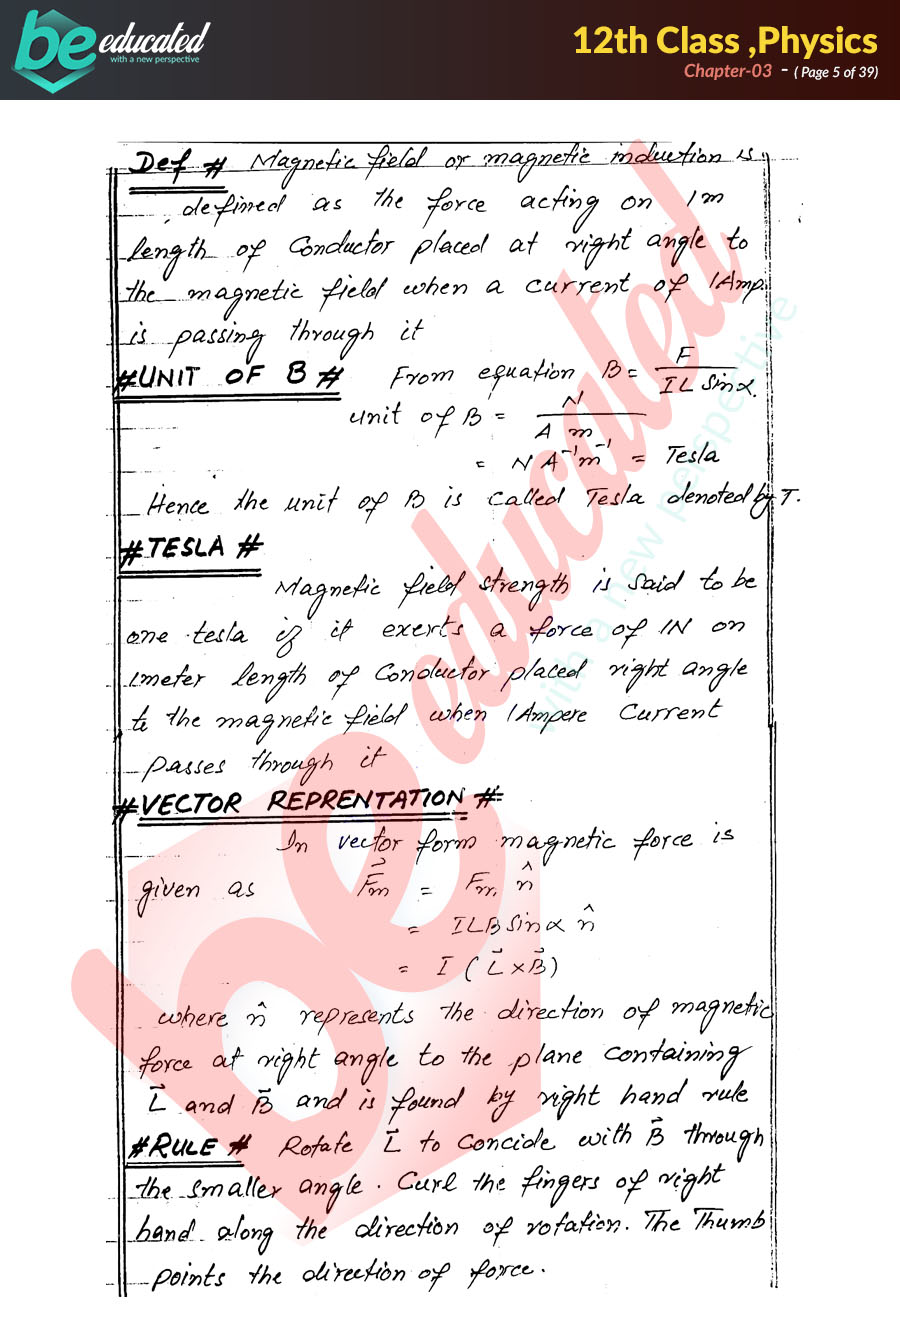 be educated
with a new perspective
12th Class ,Physics
Chapter-03 - ( Page 5 of 39)
Def # Magnetic field or magnetic induction is
defined as the force acting on 1m
length of Conductor placed at right angle to
the magnetic field when a current of 1Amp.
is passing through it
#UNIT OF B # From equation B = F / IL Sinα.
unit of B = N / A m
= N A⁻¹m⁻¹ = Tesla
Hence the unit of B is called Tesla denoted by T.
#TESLA #
Magnetic field strength is said to be
one tesla if it exerts a force of 1N on
1meter length of Conductor placed right angle
to the magnetic field when 1Ampere Current
passes through it
#VECTOR REPRENTATION #
In vector form magnetic force is
given as F⃗m = Fm n̂
= ILB Sinα n̂
= I ( L⃗ × B⃗ )
where n̂ represents the direction of magnetic
force at right angle to the plane containing
L⃗ and B⃗ and is found by right hand rule
#RULE # Rotate L⃗ to concide with B⃗ through
the smaller angle. Curl the fingers of right
hand along the direction of rotation. The Thumb
points the direction of force.
be educated
with a new perspective